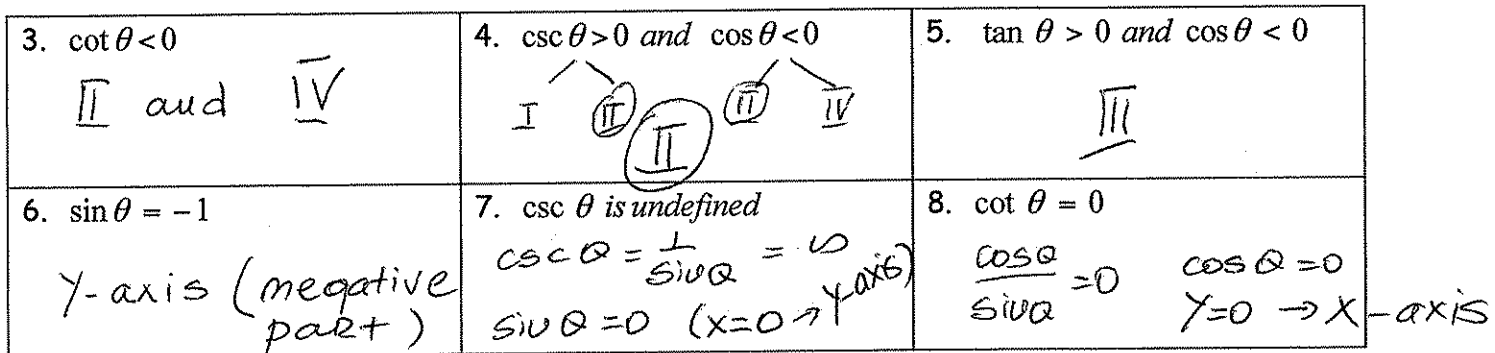 3. cot θ<0
II and IV
4. csc θ>0 and cos θ<0
I II II IV
II
5. tan θ > 0 and cos θ < 0
III
6. sin θ = −1
Y-axis (negative
part)
7. csc θ is undefined
csc θ = 1/sin θ = ∞
sin θ = 0 (x=0 → Y-axis)
8. cot θ = 0
cosθ/sinθ = 0 cos θ = 0
Y=0 → X-axis